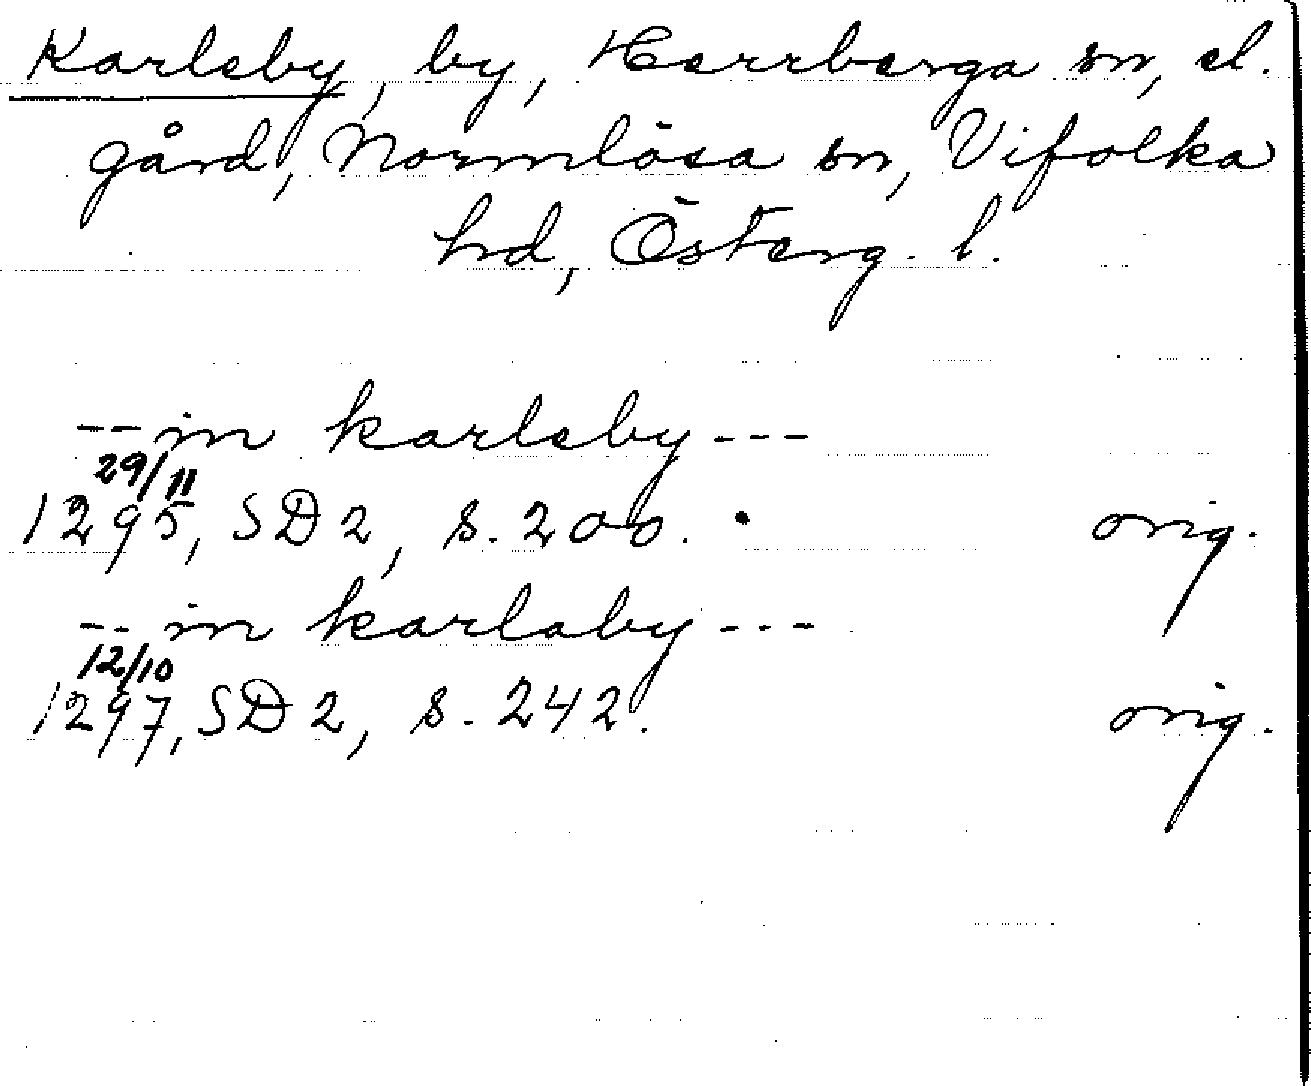 Karleby, by, Herrberga sn, el.
gård, Normlösa sn, Vifolka
hd, Österg. l.
-- in karleby ---
29/11
1295, SD 2, s. 200.   orig.
-- in karlaby ---
12/10
1297, SD 2, s. 242.   orig.